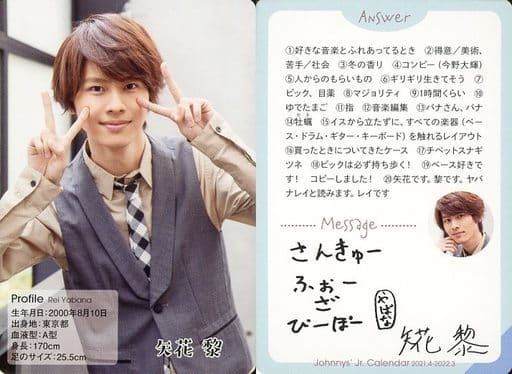 Profile Rei Yabana
生年月日:2000年8月10日
出身地:東京都
血液型:A型
身長:170cm
足のサイズ:25.5cm
矢花 黎
Answer
①好きな音楽とふれあってるとき ②得意／美術、
苦手／社会 ③冬の香り ④コンビー（今野大輝）
⑤人からのもらいもの ⑥ギリギリ生きてそう ⑦
ピック、目薬 ⑧マジョリティ ⑨1時間くらい ⑩
ゆでたまご ⑪指 ⑫音楽編集 ⑬バナさん、バナ
⑭牡蠣 ⑮イスから立たずに、すべての楽器（ベー
ス・ドラム・ギター・キーボード）を触れるレイアウト
⑯買ったときについてきたケース ⑰チベットスナギ
ツネ ⑱ピックは必ず持ち歩く！ ⑲ベース好きで
す！ コピーしました！ ⑳矢花です。黎です。ヤバ
ナレイと読みます。レイです
Message
さんきゅー
ふぉー
ざ
ぴーぽー
やばな
矢花 黎
Johnnys' Jr. Calendar 2021.4-2022.3